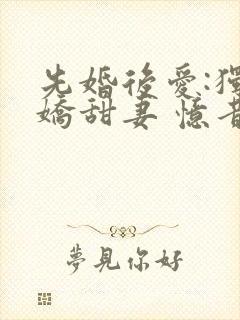 先婚後愛:獨
嬌甜妻 憶昔
夢見你好